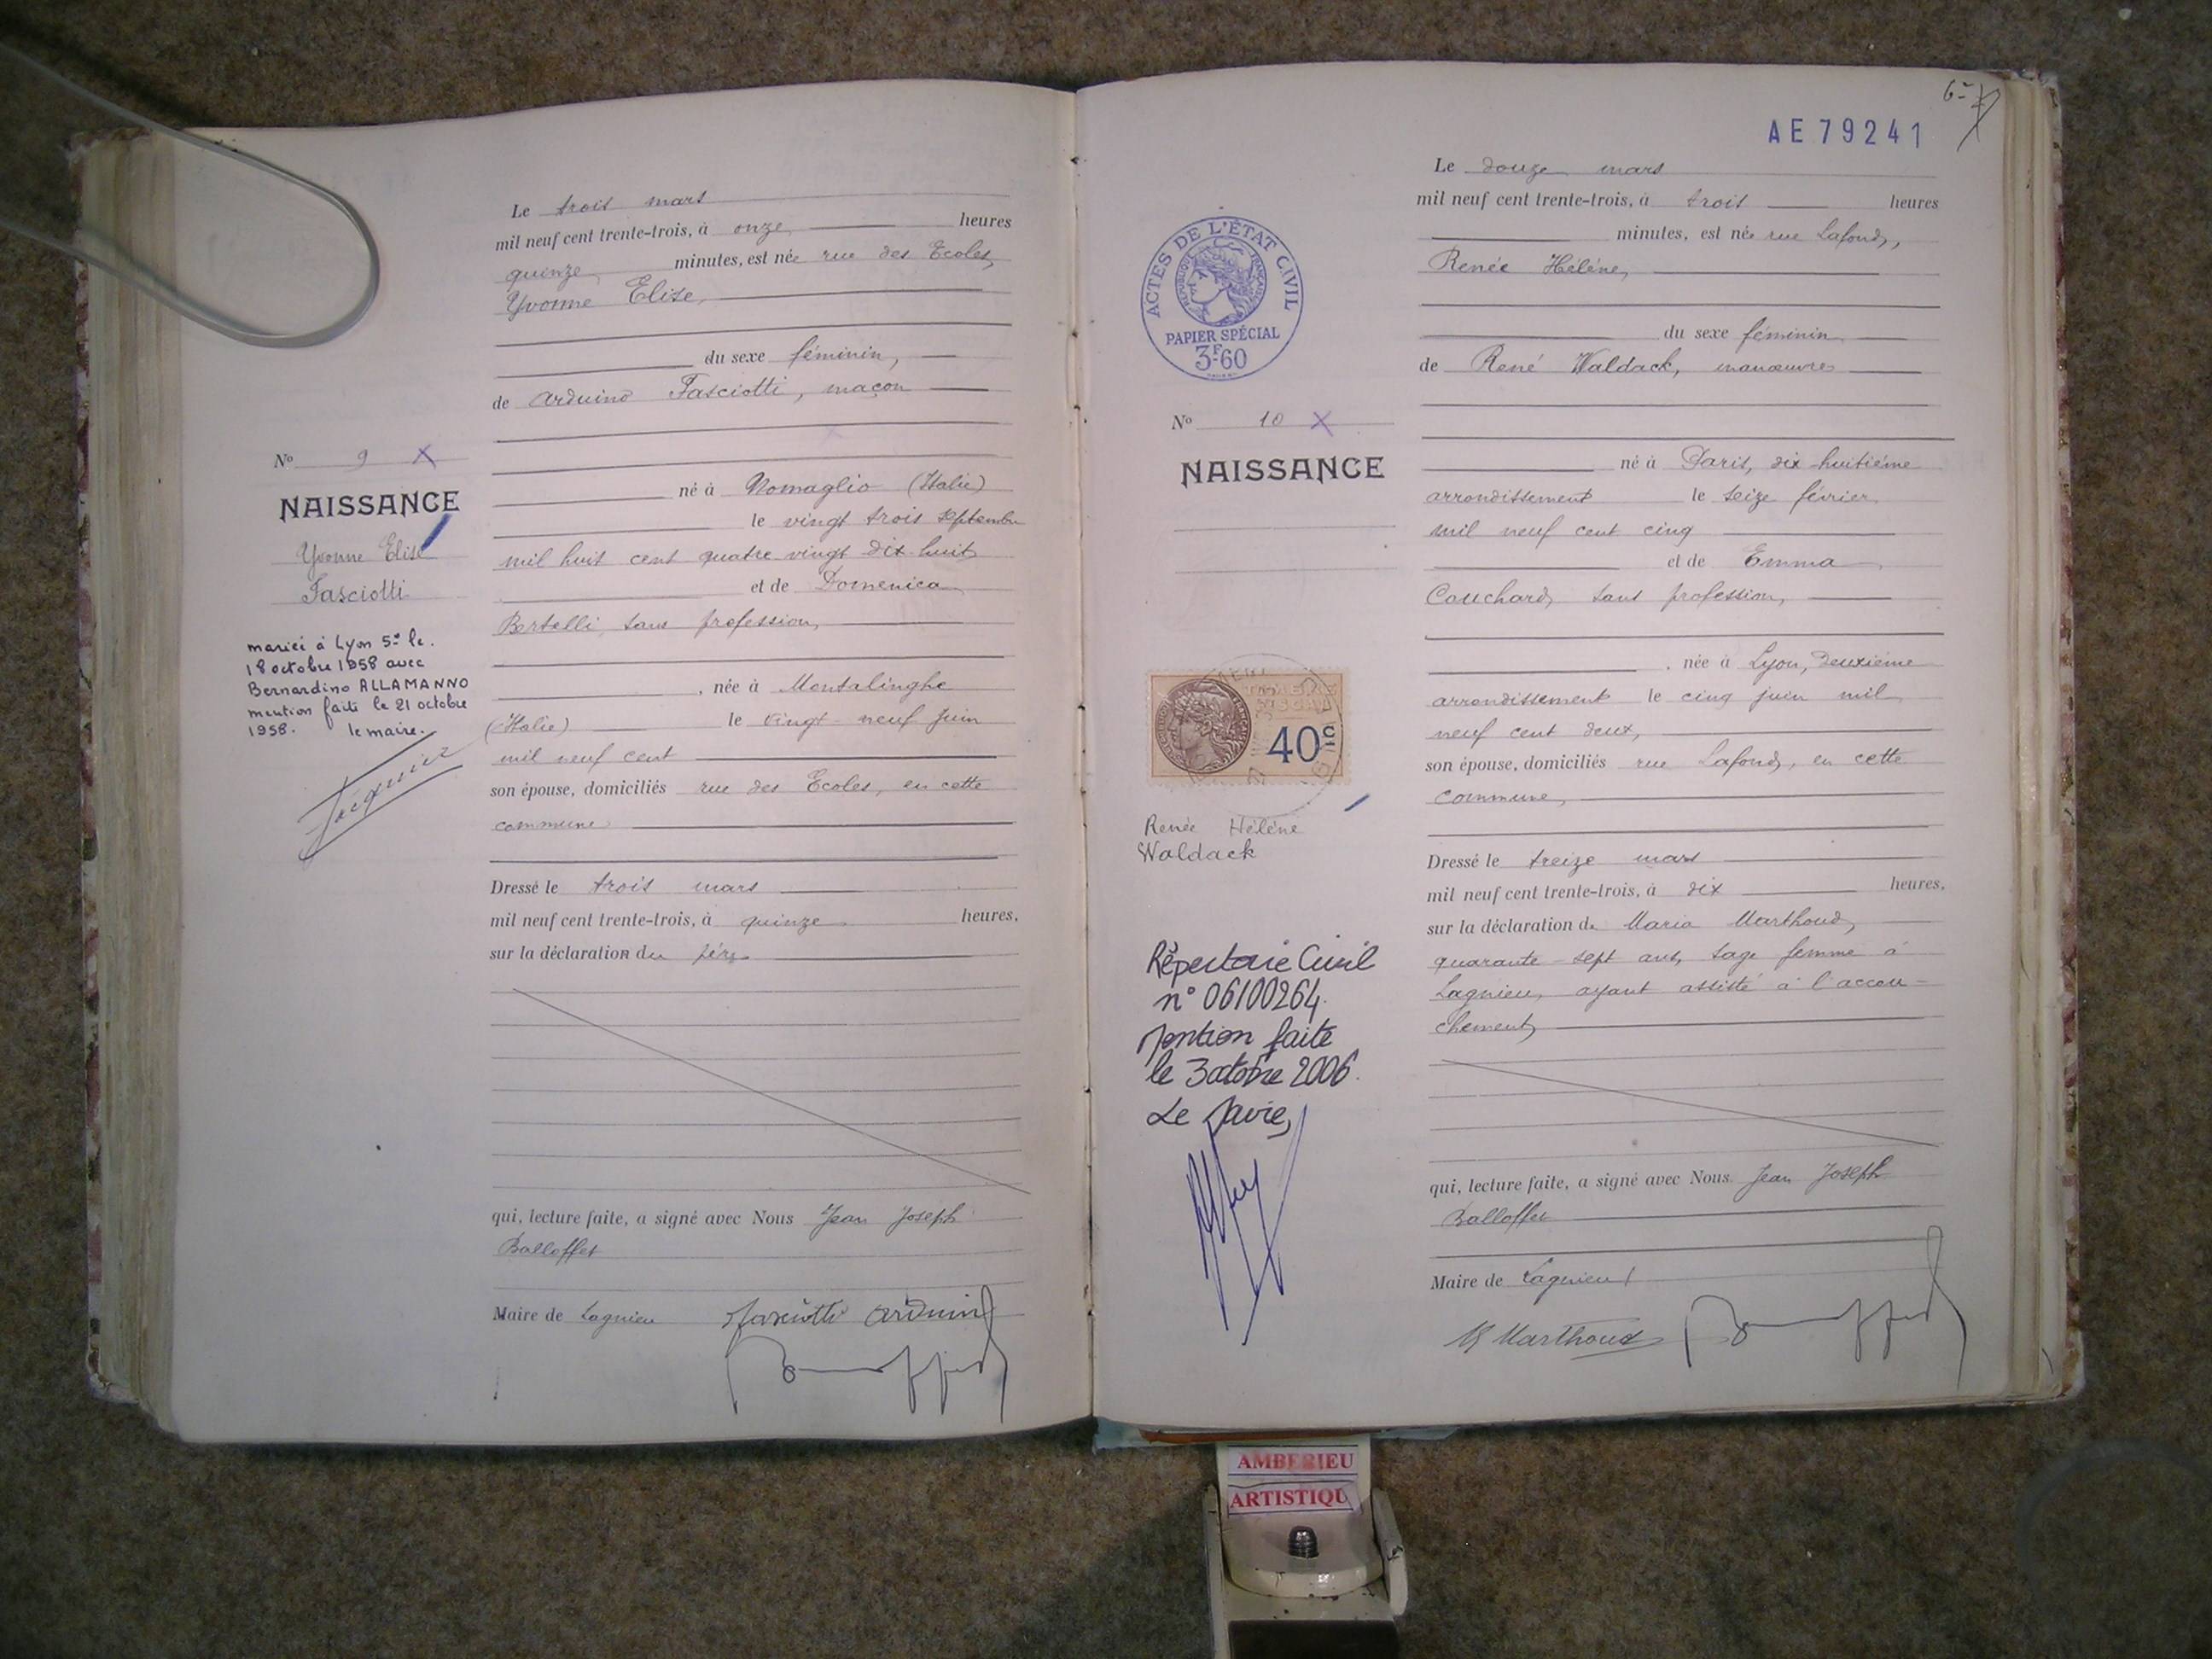 Le trois mars
mil neuf cent trente-trois, à onze heures
quinze minutes, est née rue des Ecoles,
Yvonne Elise,
du sexe féminin,
de Arduino Fasciotti, maçon
né à Nomaglio (Italie)
le vingt trois septembre
mil huit cent quatre-vingt dix huit
et de Domenica
Bertelli, sans profession,
, née à Montalinghe
(Italie) le vingt-neuf juin
mil neuf cent
son épouse, domiciliés rue des Ecoles, en cette
commune
Dressé le trois mars
mil neuf cent trente-trois, à quinze heures,
sur la déclaration du père
qui, lecture faite, a signé avec Nous Jean Joseph
Balloffet
Maire de Lagnieu Fasciotti Arduino
No 9 X
NAISSANCE
Yvonne Elise
Fasciotti
mariée à Lyon 5e le
18 octobre 1958 avec
Bernardino ALLAMANNO
mention faite le 21 octobre
1958. le maire.
6-
AE 79241
Le douze mars
mil neuf cent trente-trois, à trois heures
minutes, est née rue Lafond,
Renée Hélène,
du sexe féminin
de René Waldack, manœuvre
né à Paris, dix-huitième
arrondissement le seize février
mil neuf cent cinq
et de Emma
Couchard, sans profession,
, née à Lyon, deuxième
arrondissement le cinq juin mil
neuf cent deux,
son épouse, domiciliés rue Lafond, en cette
commune,
Dressé le treize mars
mil neuf cent trente-trois, à dix heures,
sur la déclaration de Maria Marthoud,
quarante-sept ans, sage femme à
Lagnieu, ayant assisté à l'accou-
chement
qui, lecture faite, a signé avec Nous Jean Joseph
Balloffet
Maire de Lagnieu
M Marthoud
ACTES DE L'ÉTAT CIVIL
RÉPUBLIQUE FRANÇAISE
PAPIER SPÉCIAL
3F60
No 10 X
NAISSANCE
40c
Renée Hélène
Waldack
Répertoire Civil
n° 06100264.
Mention faite
le 3 octobre 2006.
Le Maire,
AMBERIEU
ARTISTIQU